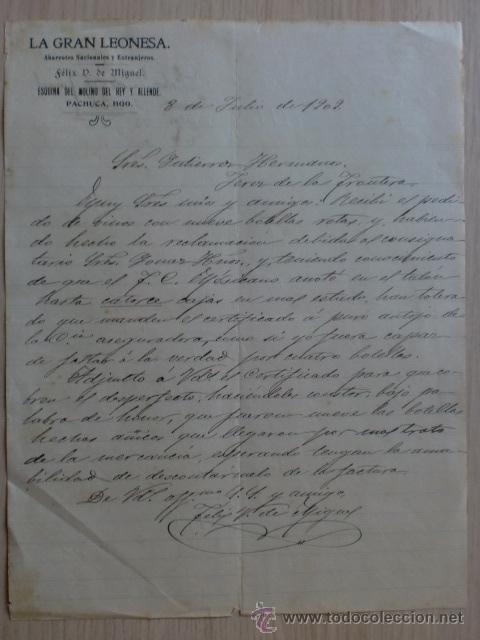 LA GRAN LEONESA.
Abarrotes Nacionales y Extranjeros.
Félix V. de Miguel.
ESQUINA DEL MOLINO DEL REY Y ALLENDE.
PACHUCA, HGO.
8 de Julio de 1902.
Sres. Gutierrez Hermanos.
Jerez de la Frontera.
Muy Sres mios y amigos: Recibí el pedi-
do de vinos con nueve botellas rotas, y habien-
do hecho la reclamacion debida al consigna-
tario Sres. y teniendo conocimiento
de que el F. C. Mexicano anotó en el talón
hasta catorce cajas en mal estado, han tolera-
do que manden el certificado á puro antojo de
la Cia aseguradora, como si yo fuera capaz
de faltar á la verdad por cuatro botellas.
Adjunto á Vds el Certificado para que co-
bren el desperfecto, haciendoles constar, bajo pa-
labra de honor, que fueron nueve las botellas
hechas añicos que llegaron por mal trato
de la mercancia, esperando tengan la ama-
bilidad de descontarmelo de la factura.
De Vds. affmo S. S. y amigo
Felix V. de Miguel
www.todocoleccion.net